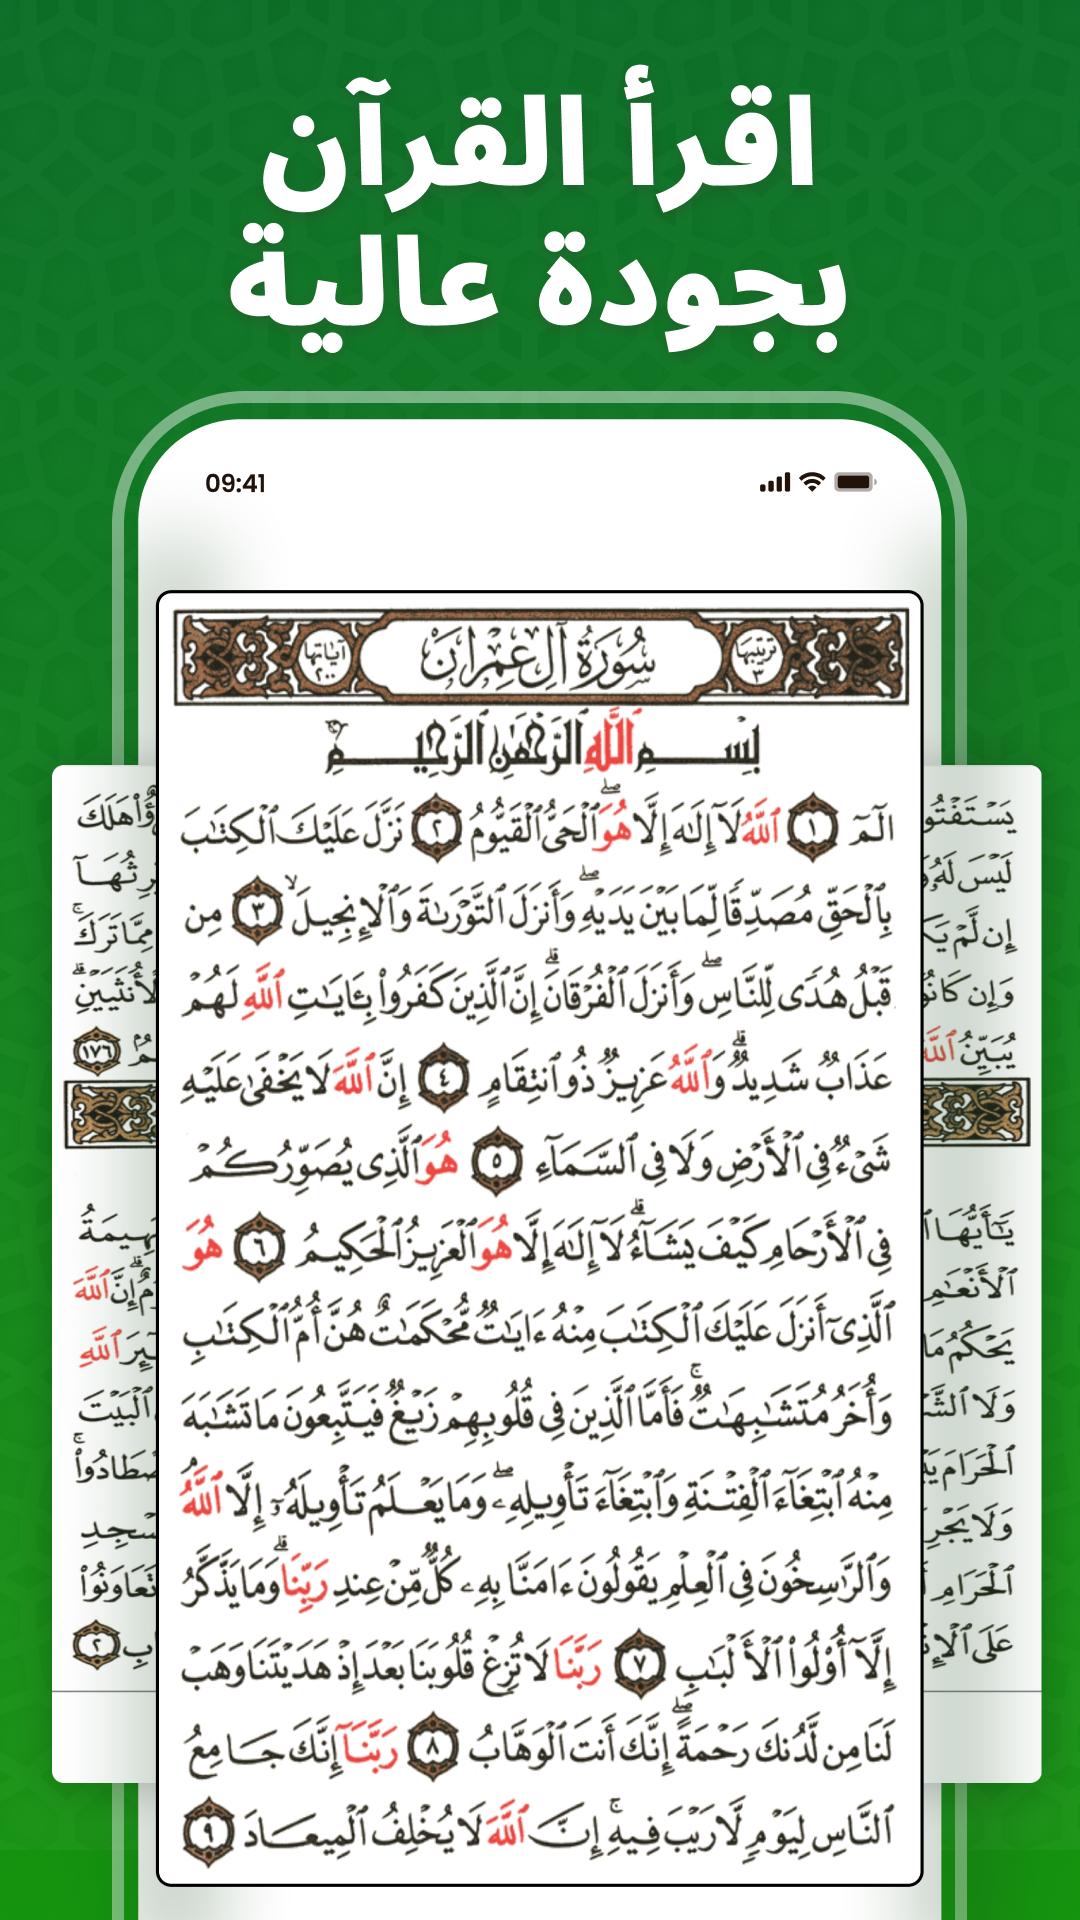 اقرأ القرآن
بجودة عالية
09:41
ترتيبها ٣ سُورَةُ آلِ عِمْرَانَ آياتها ٢٠٠
بِسْمِ ٱللَّهِ ٱلرَّحْمَٰنِ ٱلرَّحِيمِ
الٓمٓ ١ ٱللَّهُ لَآ إِلَٰهَ إِلَّا هُوَ ۖ ٱلْحَىُّ ٱلْقَيُّومُ ٢ نَزَّلَ عَلَيْكَ ٱلْكِتَٰبَ
بِٱلْحَقِّ مُصَدِّقًا لِّمَا بَيْنَ يَدَيْهِ ۖ وَأَنزَلَ ٱلتَّوْرَىٰةَ وَٱلْإِنجِيلَ ۙ ٣ مِن
قَبْلُ هُدًى لِّلنَّاسِ ۖ وَأَنزَلَ ٱلْفُرْقَانَ ۗ إِنَّ ٱلَّذِينَ كَفَرُوا۟ بِـَٔايَٰتِ ٱللَّهِ لَهُمْ
عَذَابٌ شَدِيدٌ ۗ وَٱللَّهُ عَزِيزٌ ذُو ٱنتِقَامٍ ٤ إِنَّ ٱللَّهَ لَا يَخْفَىٰ عَلَيْهِ
شَىْءٌ فِى ٱلْأَرْضِ وَلَا فِى ٱلسَّمَآءِ ٥ هُوَ ٱلَّذِى يُصَوِّرُكُمْ
فِى ٱلْأَرْحَامِ كَيْفَ يَشَآءُ ۗ لَآ إِلَٰهَ إِلَّا هُوَ ٱلْعَزِيزُ ٱلْحَكِيمُ ٦ هُوَ
ٱلَّذِىٓ أَنزَلَ عَلَيْكَ ٱلْكِتَٰبَ مِنْهُ ءَايَٰتٌ مُّحْكَمَٰتٌ هُنَّ أُمُّ ٱلْكِتَٰبِ
وَأُخَرُ مُتَشَٰبِهَٰتٌ ۚ فَأَمَّا ٱلَّذِينَ فِى قُلُوبِهِمْ زَيْغٌ فَيَتَّبِعُونَ مَا تَشَٰبَهَ
مِنْهُ ٱبْتِغَآءَ ٱلْفِتْنَةِ وَٱبْتِغَآءَ تَأْوِيلِهِۦ ۖ وَمَا يَعْلَمُ تَأْوِيلَهُۥٓ إِلَّا ٱللَّهُ
وَٱلرَّٰسِخُونَ فِى ٱلْعِلْمِ يَقُولُونَ ءَامَنَّا بِهِۦ كُلٌّ مِّنْ عِندِ رَبِّنَا ۗ وَمَا يَذَّكَّرُ
إِلَّآ أُو۟لُوا۟ ٱلْأَلْبَٰبِ ٧ رَبَّنَا لَا تُزِغْ قُلُوبَنَا بَعْدَ إِذْ هَدَيْتَنَا وَهَبْ
لَنَا مِن لَّدُنكَ رَحْمَةً ۖ إِنَّكَ أَنتَ ٱلْوَهَّابُ ٨ رَبَّنَآ إِنَّكَ جَامِعُ
ٱلنَّاسِ لِيَوْمٍ لَّا رَيْبَ فِيهِ ۚ إِنَّ ٱللَّهَ لَا يُخْلِفُ ٱلْمِيعَادَ ٩
لَيْسَ لَهُۥ
إِن لَّمْ
وَإِن
يُبَيِّنُ ٱللَّهُ
يَٰٓأَيُّهَا
ٱلْأَنْعَٰمِ
يَحْكُمُ مَا
وَلَا
ٱلْحَرَامَ
وَلَا
ٱلْحَرَامِ
عَلَى
هَلَكَ
مِمَّا تَرَكَ
١٧٦
إِنَّ ٱللَّهَ
ٱللَّهِ
ٱلْبَيْتَ
٢